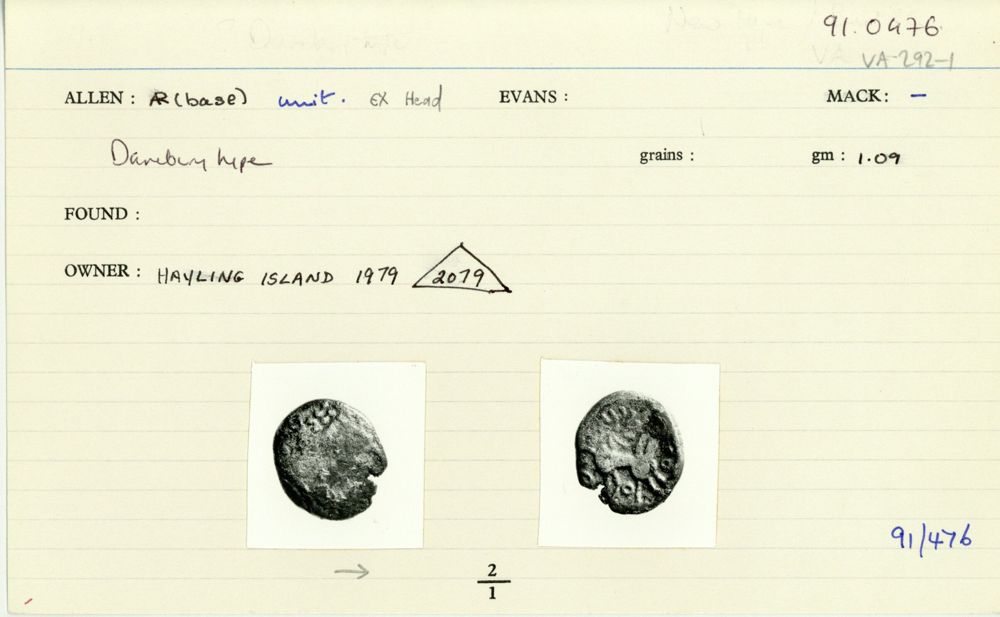 91.0476
VA-292-1
ALLEN : AR (base) unit. EX Head EVANS : MACK: –
Danebury type grains : gm : 1.09
FOUND :
OWNER : HAYLING ISLAND 1979 2079
91/476
→ 2
1